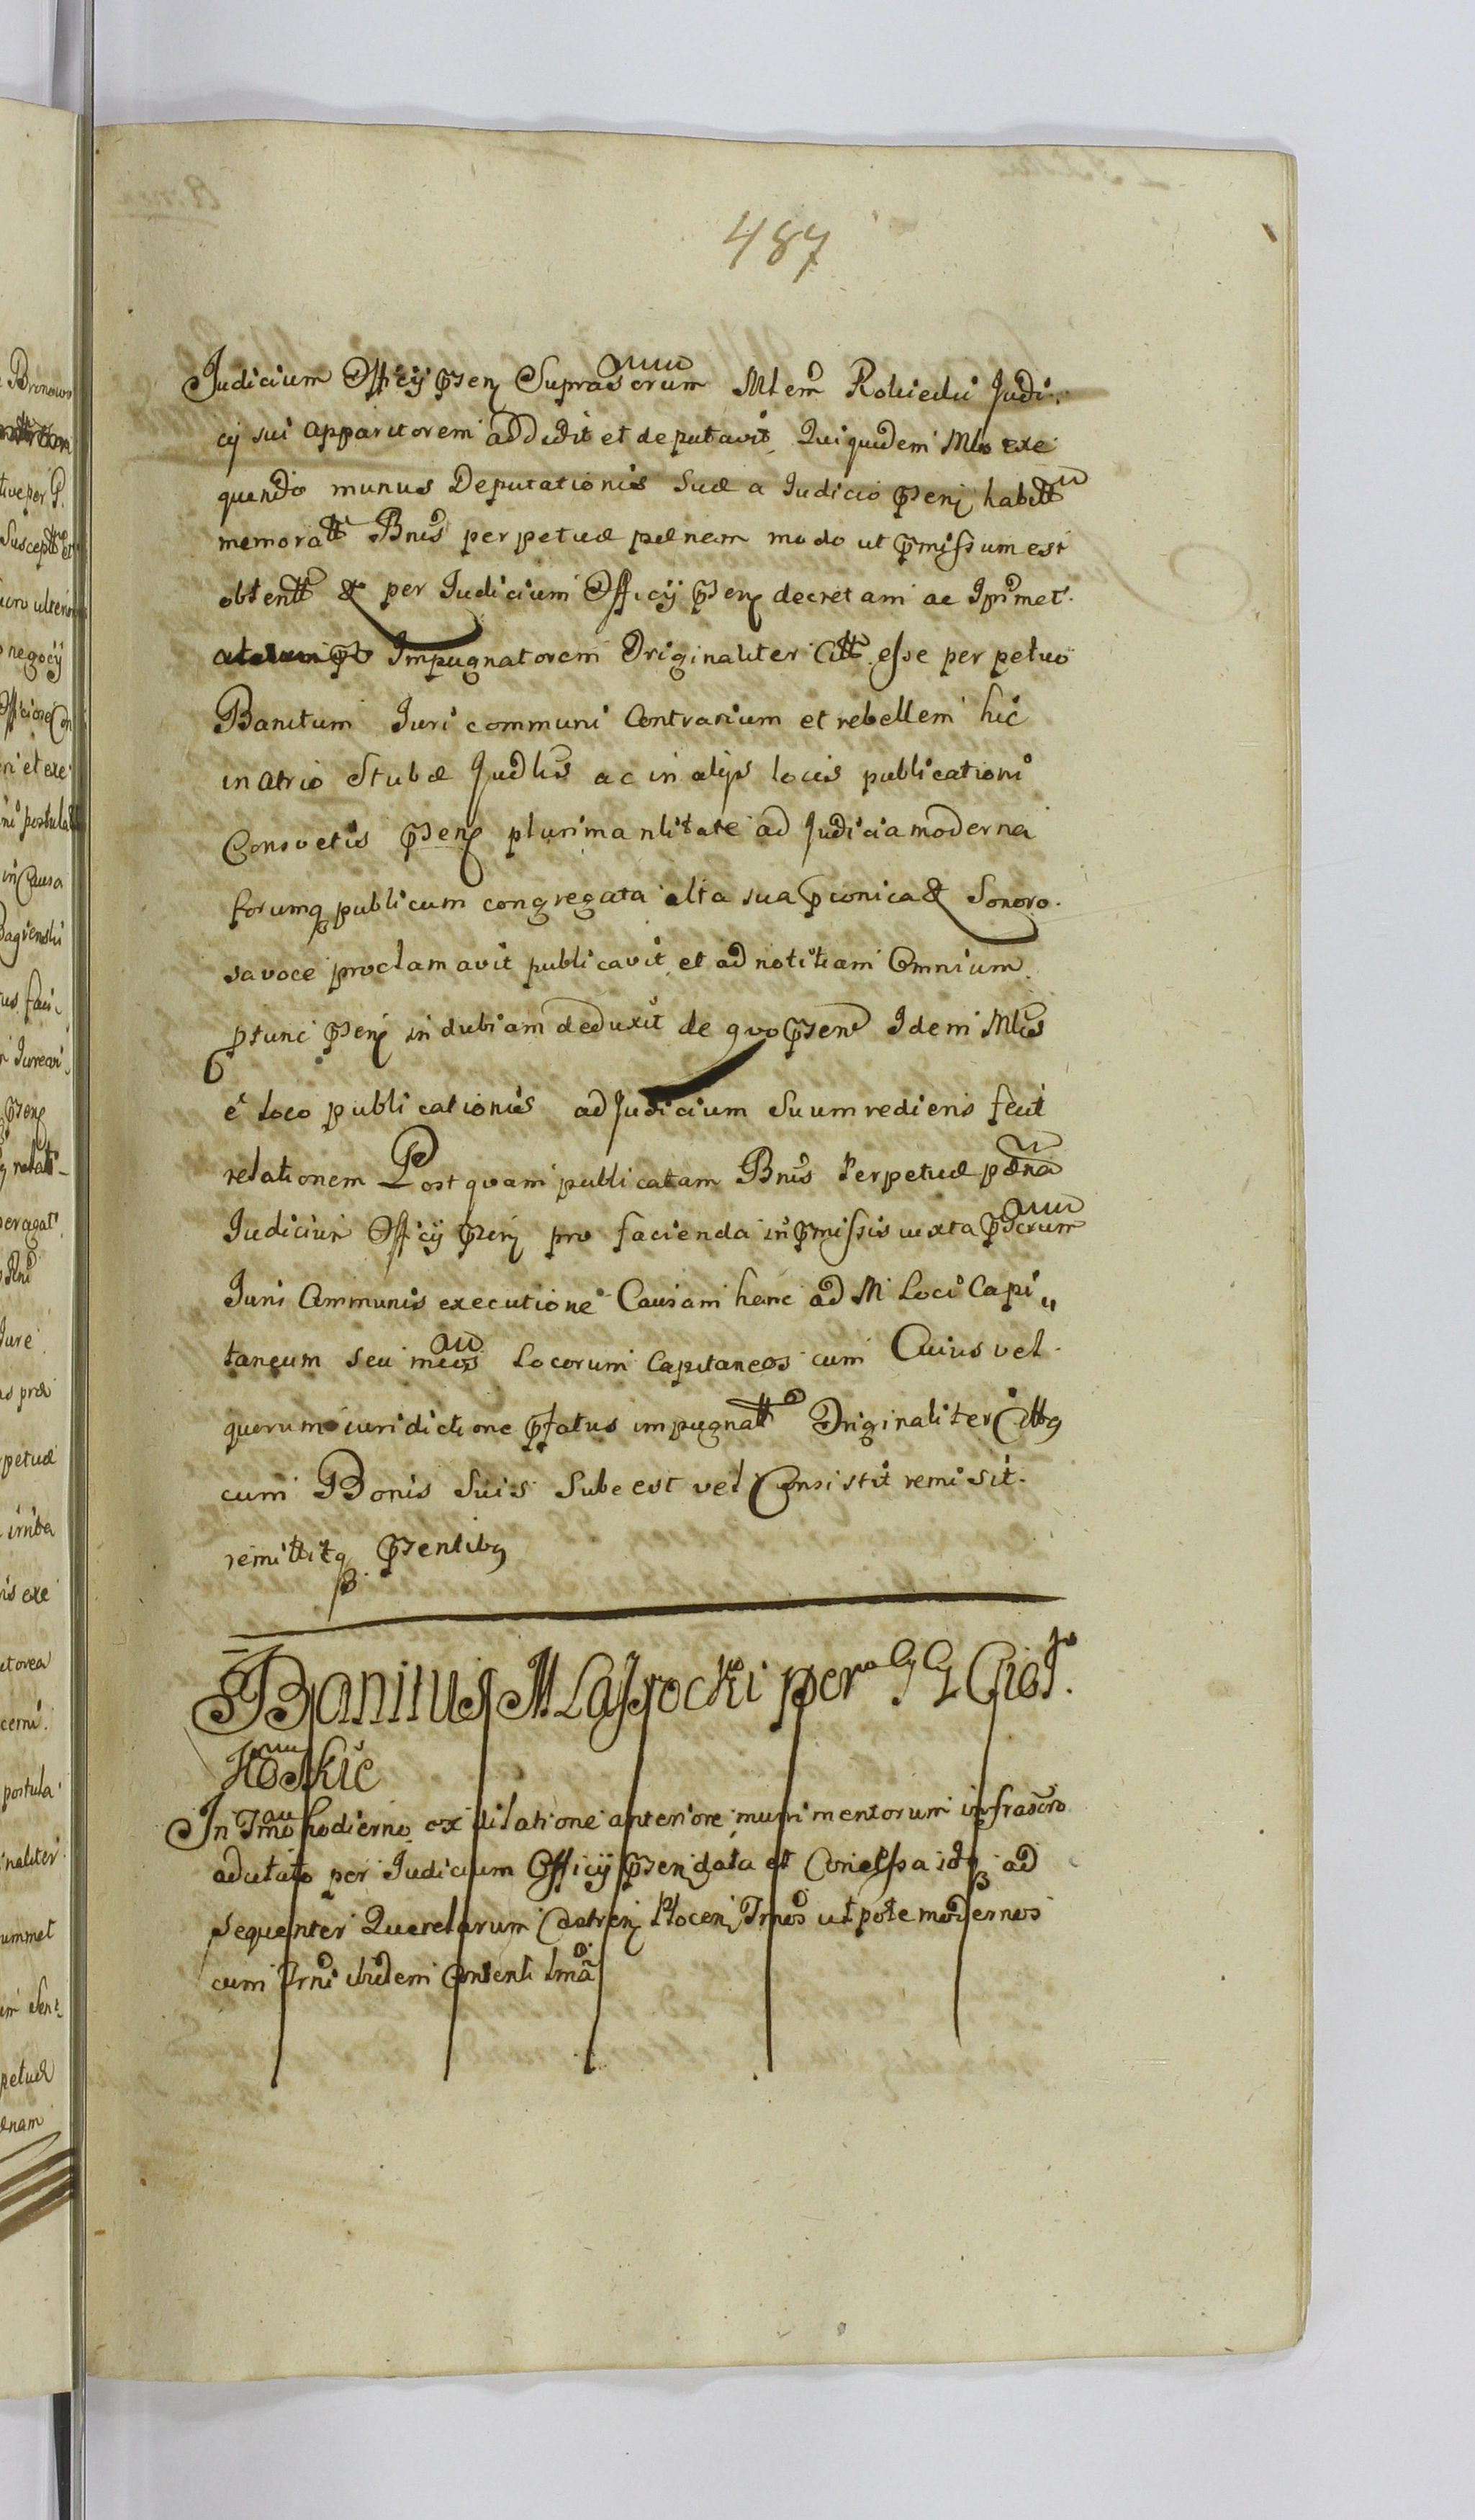 487
Judicium Officij psenš Suprasorum Mlem Robiecki Judi„
cij sui apparitorem addidit et deputavit, Qui quidem Mlis exe
quendo munus Deputationis Suæ a Iudicio psenš habitt
memoratt Bnis perpetuæ pænem modo ut pmissum est
obtentt & per Iudicium Officij psenš decretam ac Ipsmet
Impugnatorem Originaliter Citt esse perpetuo
Banitum Iuri communi Contrarium et rebellem hic
in atrio Stubæ Judlis ac in alijs locis publicationi
Consvetis psenš plurima nlitate ad Judicia moderna
forumq publicum congregata alta sua pconica & Sonoro
sa voce proclamavit publicavit et ad notitiam Omnium
ptunc psenš in dubiam deduxit de quo psens Idem Mlis
e Loco publicationis ad Judicium Suum rediens fecit
relationem Post quam publicatam Bnis Perpetuæ pæna
Iudicium Officij psenš pro facienda in pmissis iuxta pscrum
Iuris Communis executione Causam hanc ad M Loci Capi„
taneum seu mcos Locorum Capitaneos cum Cuius vel
quorum iuridictione pfatus impugnatt Originaliter Cittq
cum Bonis Suis Subeest vel Consistit remisit
remittitq psentibq
Banitus M Lassocki per GG Ciot
Howskic
In Tmo hodierno ex dilatione anteriore munimentorum infrascro
adcitato per Judicium Officij psenš data et Concessa idq ad
sequenter Querelarum Castrenš Plocenš Trnos utpote modernos
cum Trni ibidem Content tma